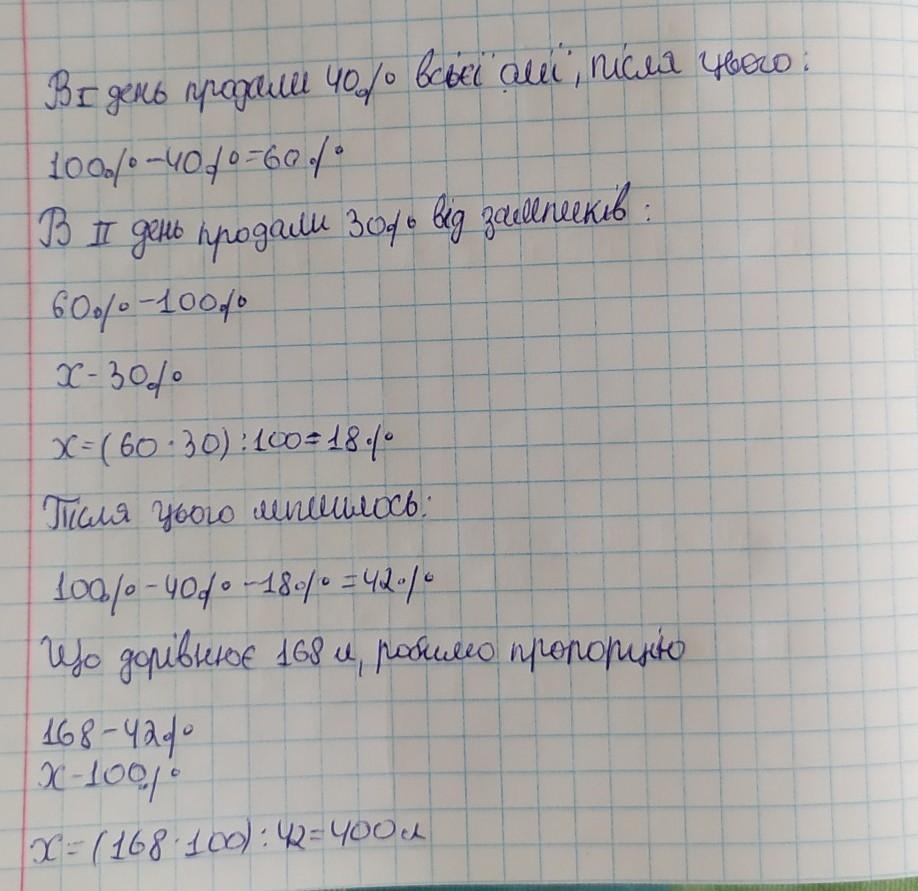 В I день продали 40% всієї олії, після цього:
100%-40%=60%
В II день продали 30% від залишків:
60%-100%
х-30%
х=(60·30):100=18%
Після цього лишилось:
100%-40%-18%=42%
Що дорівнює 168 л, робимо пропорцію
168-42%
х-100%
х=(168·100):42=400л